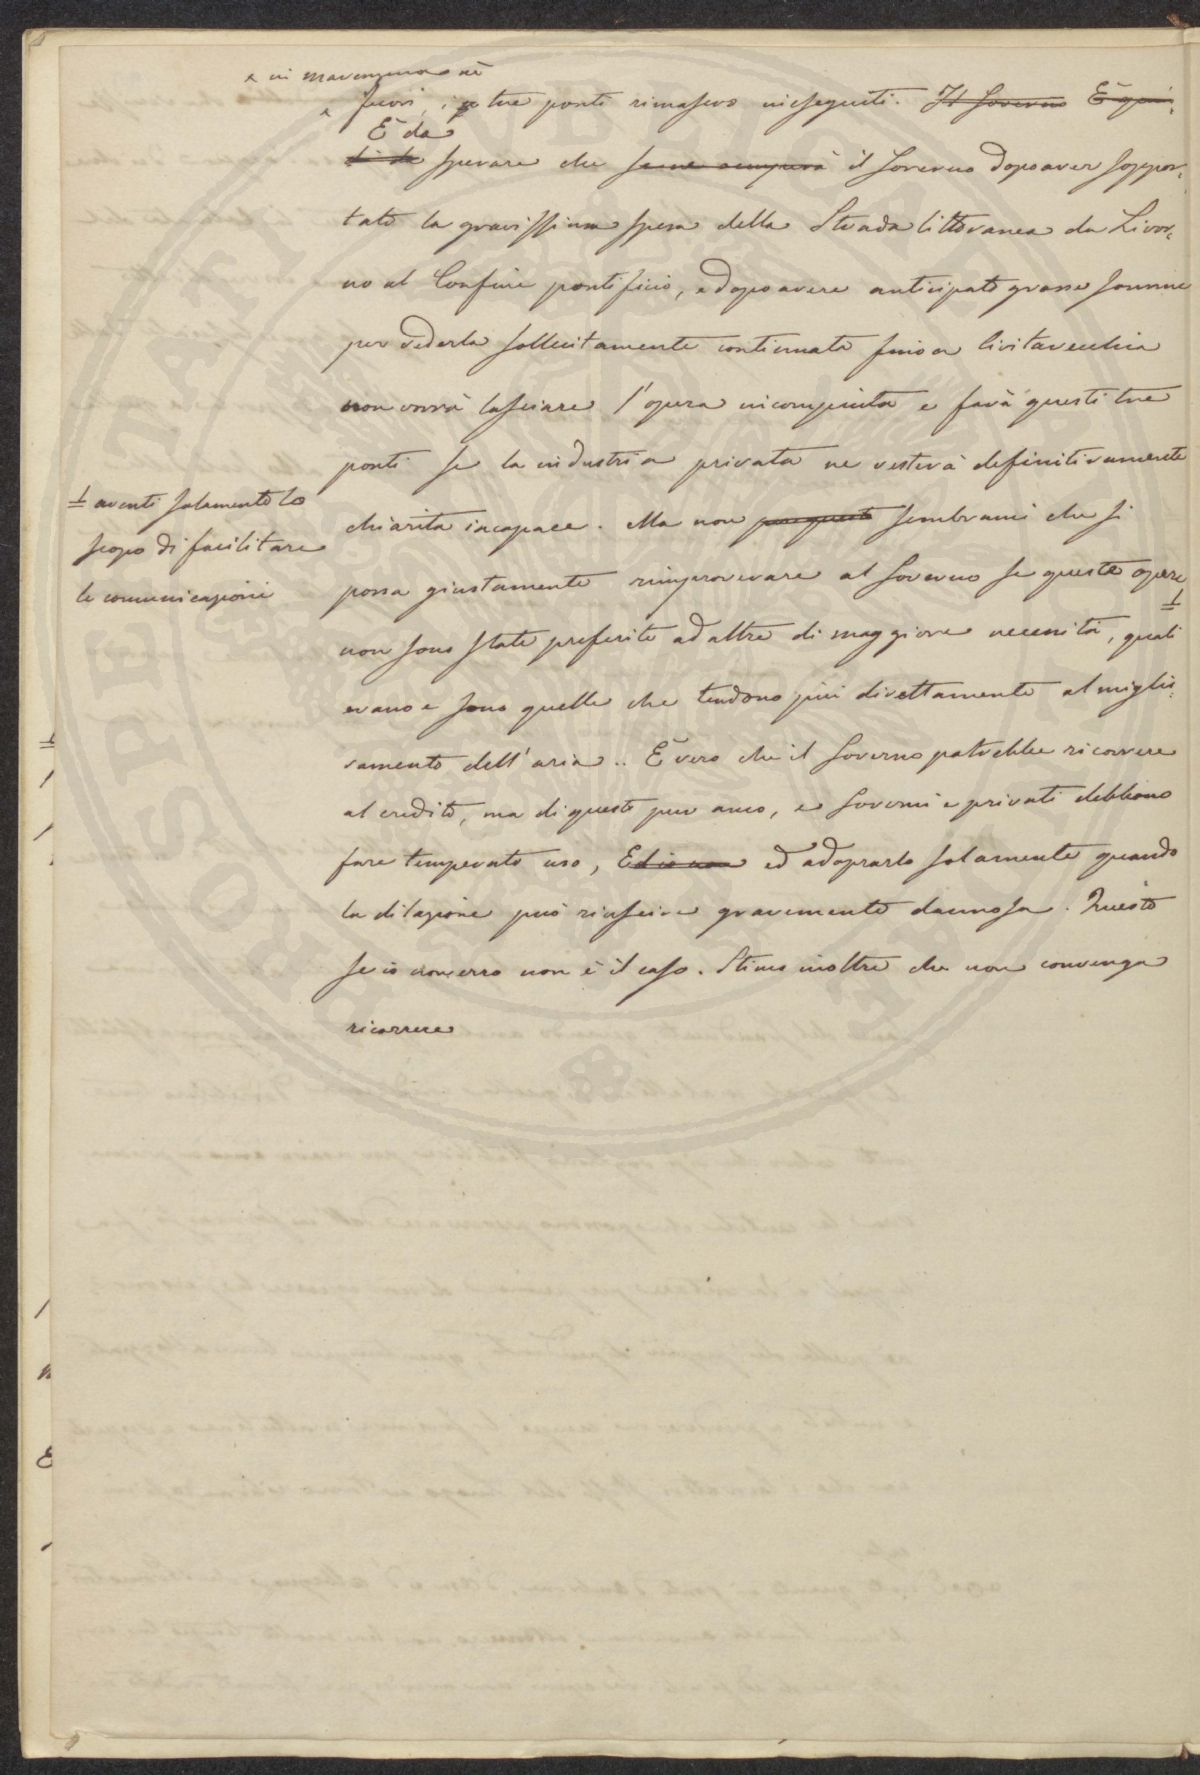 ^ in maremma nè
^ fuori, i tre ponti rimasero ineseguiti. Il Governo È quin-
È da
di da sperare che se ne occuperà il Governo dopo aver soppor-
tato la gravissima spesa della Strada littoranea da Livor-
no al Confine pontificio, e dopo avere anticipato grosse somme
per vederla sollecitamente continuata fino a Civitavecchia
non vorrà lasciare l'opera incompiuta e farà questi tre
ponti se la industria privata ne resterà definitivamente
chiarita incapace. Ma non per questo sembrami che si
possa giustamente rimproverare al Governo se queste opere
non sono state preferite ad altre di maggiore necessità, quali
erano e sono quelle che tendono più direttamente al miglio-
ramento dell'aria.. È vero che il Governo potrebbe ricorrere
al credito, ma di questo pur anco, e Governi e privati debbono
fare temperato uso, Ed io non ed adoprarlo solamente quando
la dilazione può riuscire gravemente dannosa. Questo
se io non erro non è il caso. Stimo inoltre che non convenga
ricorrere
aventi solamente lo
scopo di facilitare
le comunicazioni